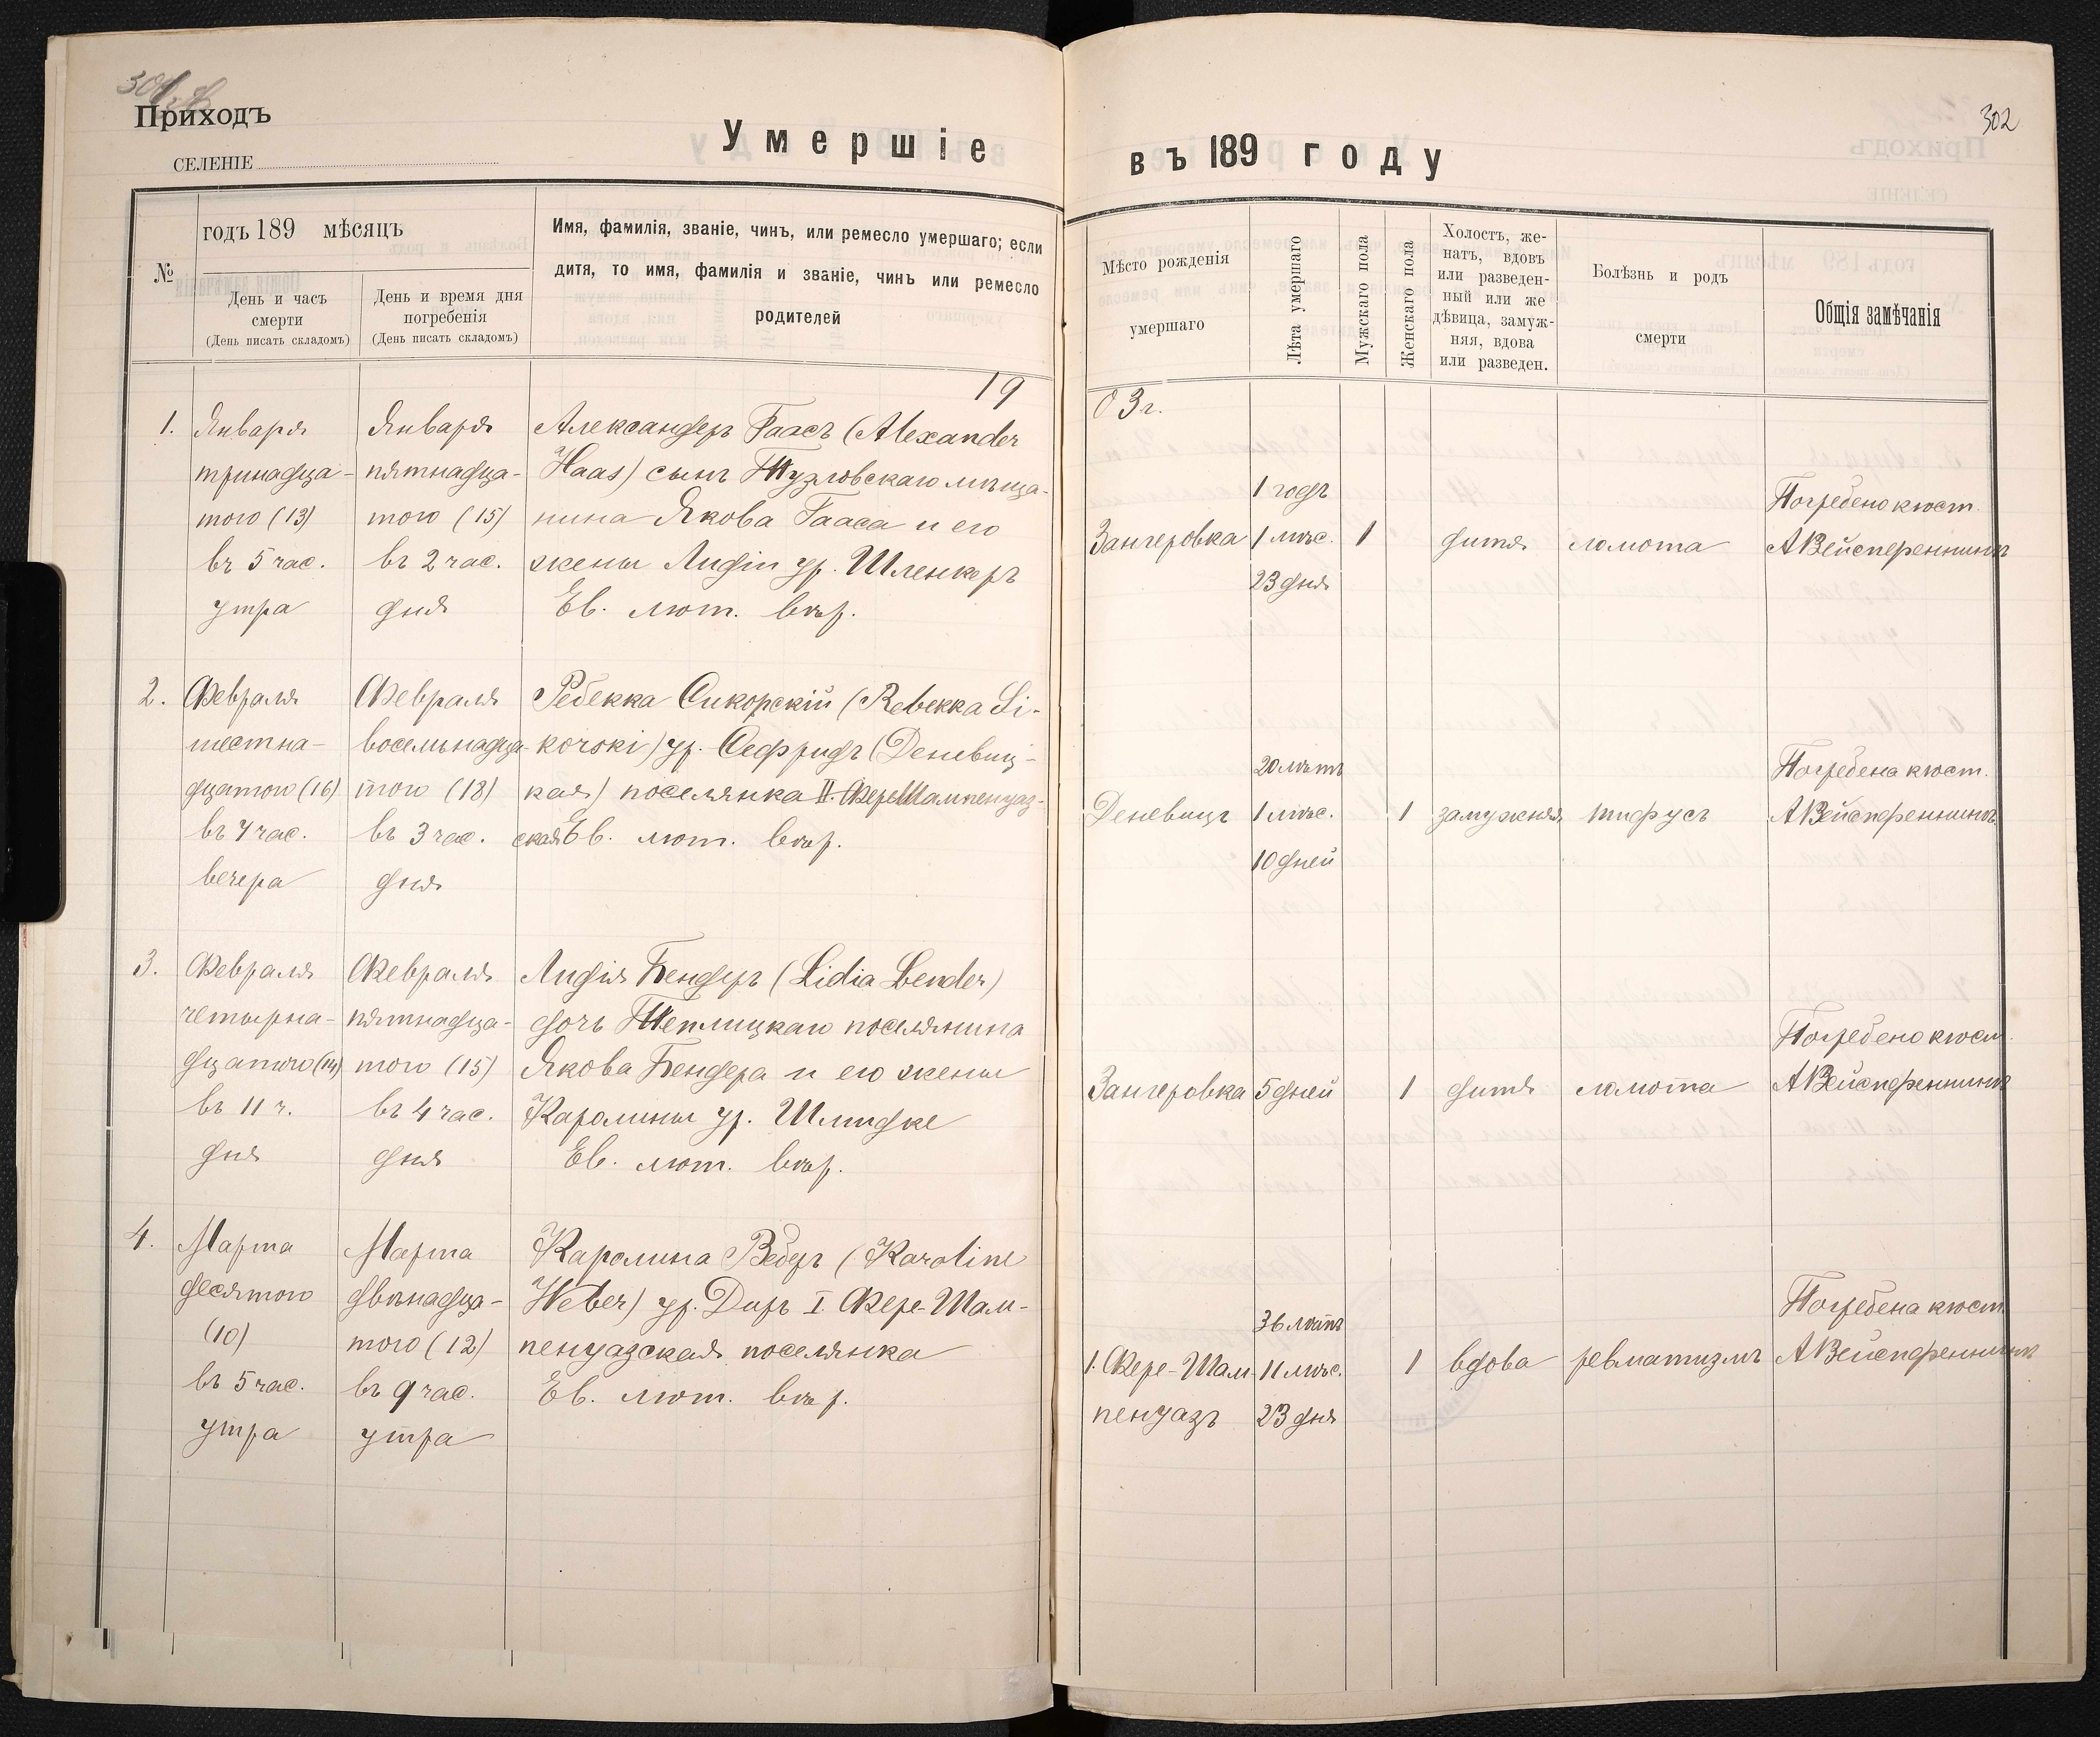 302
Приходъ
СЕЛЕНІЕ
Умершіе
въ 189 году
№
годъ 189 мѣсяцъ
День и часъ
смерти
(День писать складомъ)
День и время дня
погребенія
(День писать складомъ)
Имя, фамилія, званіе, чинъ, или ремесло умершаго; если
дитя, то имя, фамилія и званіе, чинъ или ремесло
родителей
Мѣсто рожденія
умершаго
Лѣта умершаго
Мужскаго пола
Женскаго пола
Холостъ, же-
натъ, вдовъ
или разведен-
ный или же
дѣвица, замуж-
няя, вдова
или разведен.
Болѣзнь и родъ
смерти
Общія замѣчанія
19
03 г.
1.
Января
тринадца-
того (13)
въ 5 час.
утра
Января
пятнадца-
того (15)
въ 2 час.
дня
Александеръ Гаасъ (Alexander
Haas) сынъ Тузловскаго мѣща-
нина Якова Гааса и его
жены Лидіи ур. Шленкеръ
Ев. лют. вѣр.
Зангеровка
1 годъ
1 мѣс.
23 дня
1
дитя
ломота
Погребено кюст.
А Вейспфеннингъ
2.
Февраля
шестна-
дцатого (16)
въ 7 час.
вечера
Февраля
восемьнадца-
того (18)
въ 3 час.
дня
Ребекка Сикорскій (Rebekka Si-
korski) ур. Сефридъ (Деневиц-
кая) поселянка II. Фершампенуаз-
ская Ев. лют. вѣр.
Деневицъ
20 лѣтъ
1 мѣс.
10 дней
1
замужняя
тифусъ
Погребена кюст.
А Вейспфеннингъ
3.
Февраля
четырна-
дцатого (14)
въ 11 ч.
дня
Февраля
пятнадца-
того (15)
въ 4 час.
дня
Лидія Бендеръ (Lidia Bender)
дочь Теплицкаго поселянина
Якова Бендера и его жены
Каролины ур. Шлидке
Ев. лют. вѣр.
Зангеровка
5 дней
1
дитя
ломота
Погребено кюст.
А Вейспфеннингъ
4.
Марта
десятого
(10)
въ 5 час.
утра
Марта
двѣнадца-
того (12)
въ 9 час.
утра
Каролина Веберъ (Karoline
Weber) ур. Диръ I Фере-Шам-
пенуазская поселянка
Ев. лют. вѣр.
1. Фере-Шам-
пенуазъ
36 лѣтъ
11 мѣс.
23 дня
1
вдова
ревматизмъ
Погребена кюст.
А Вейспфеннингъ